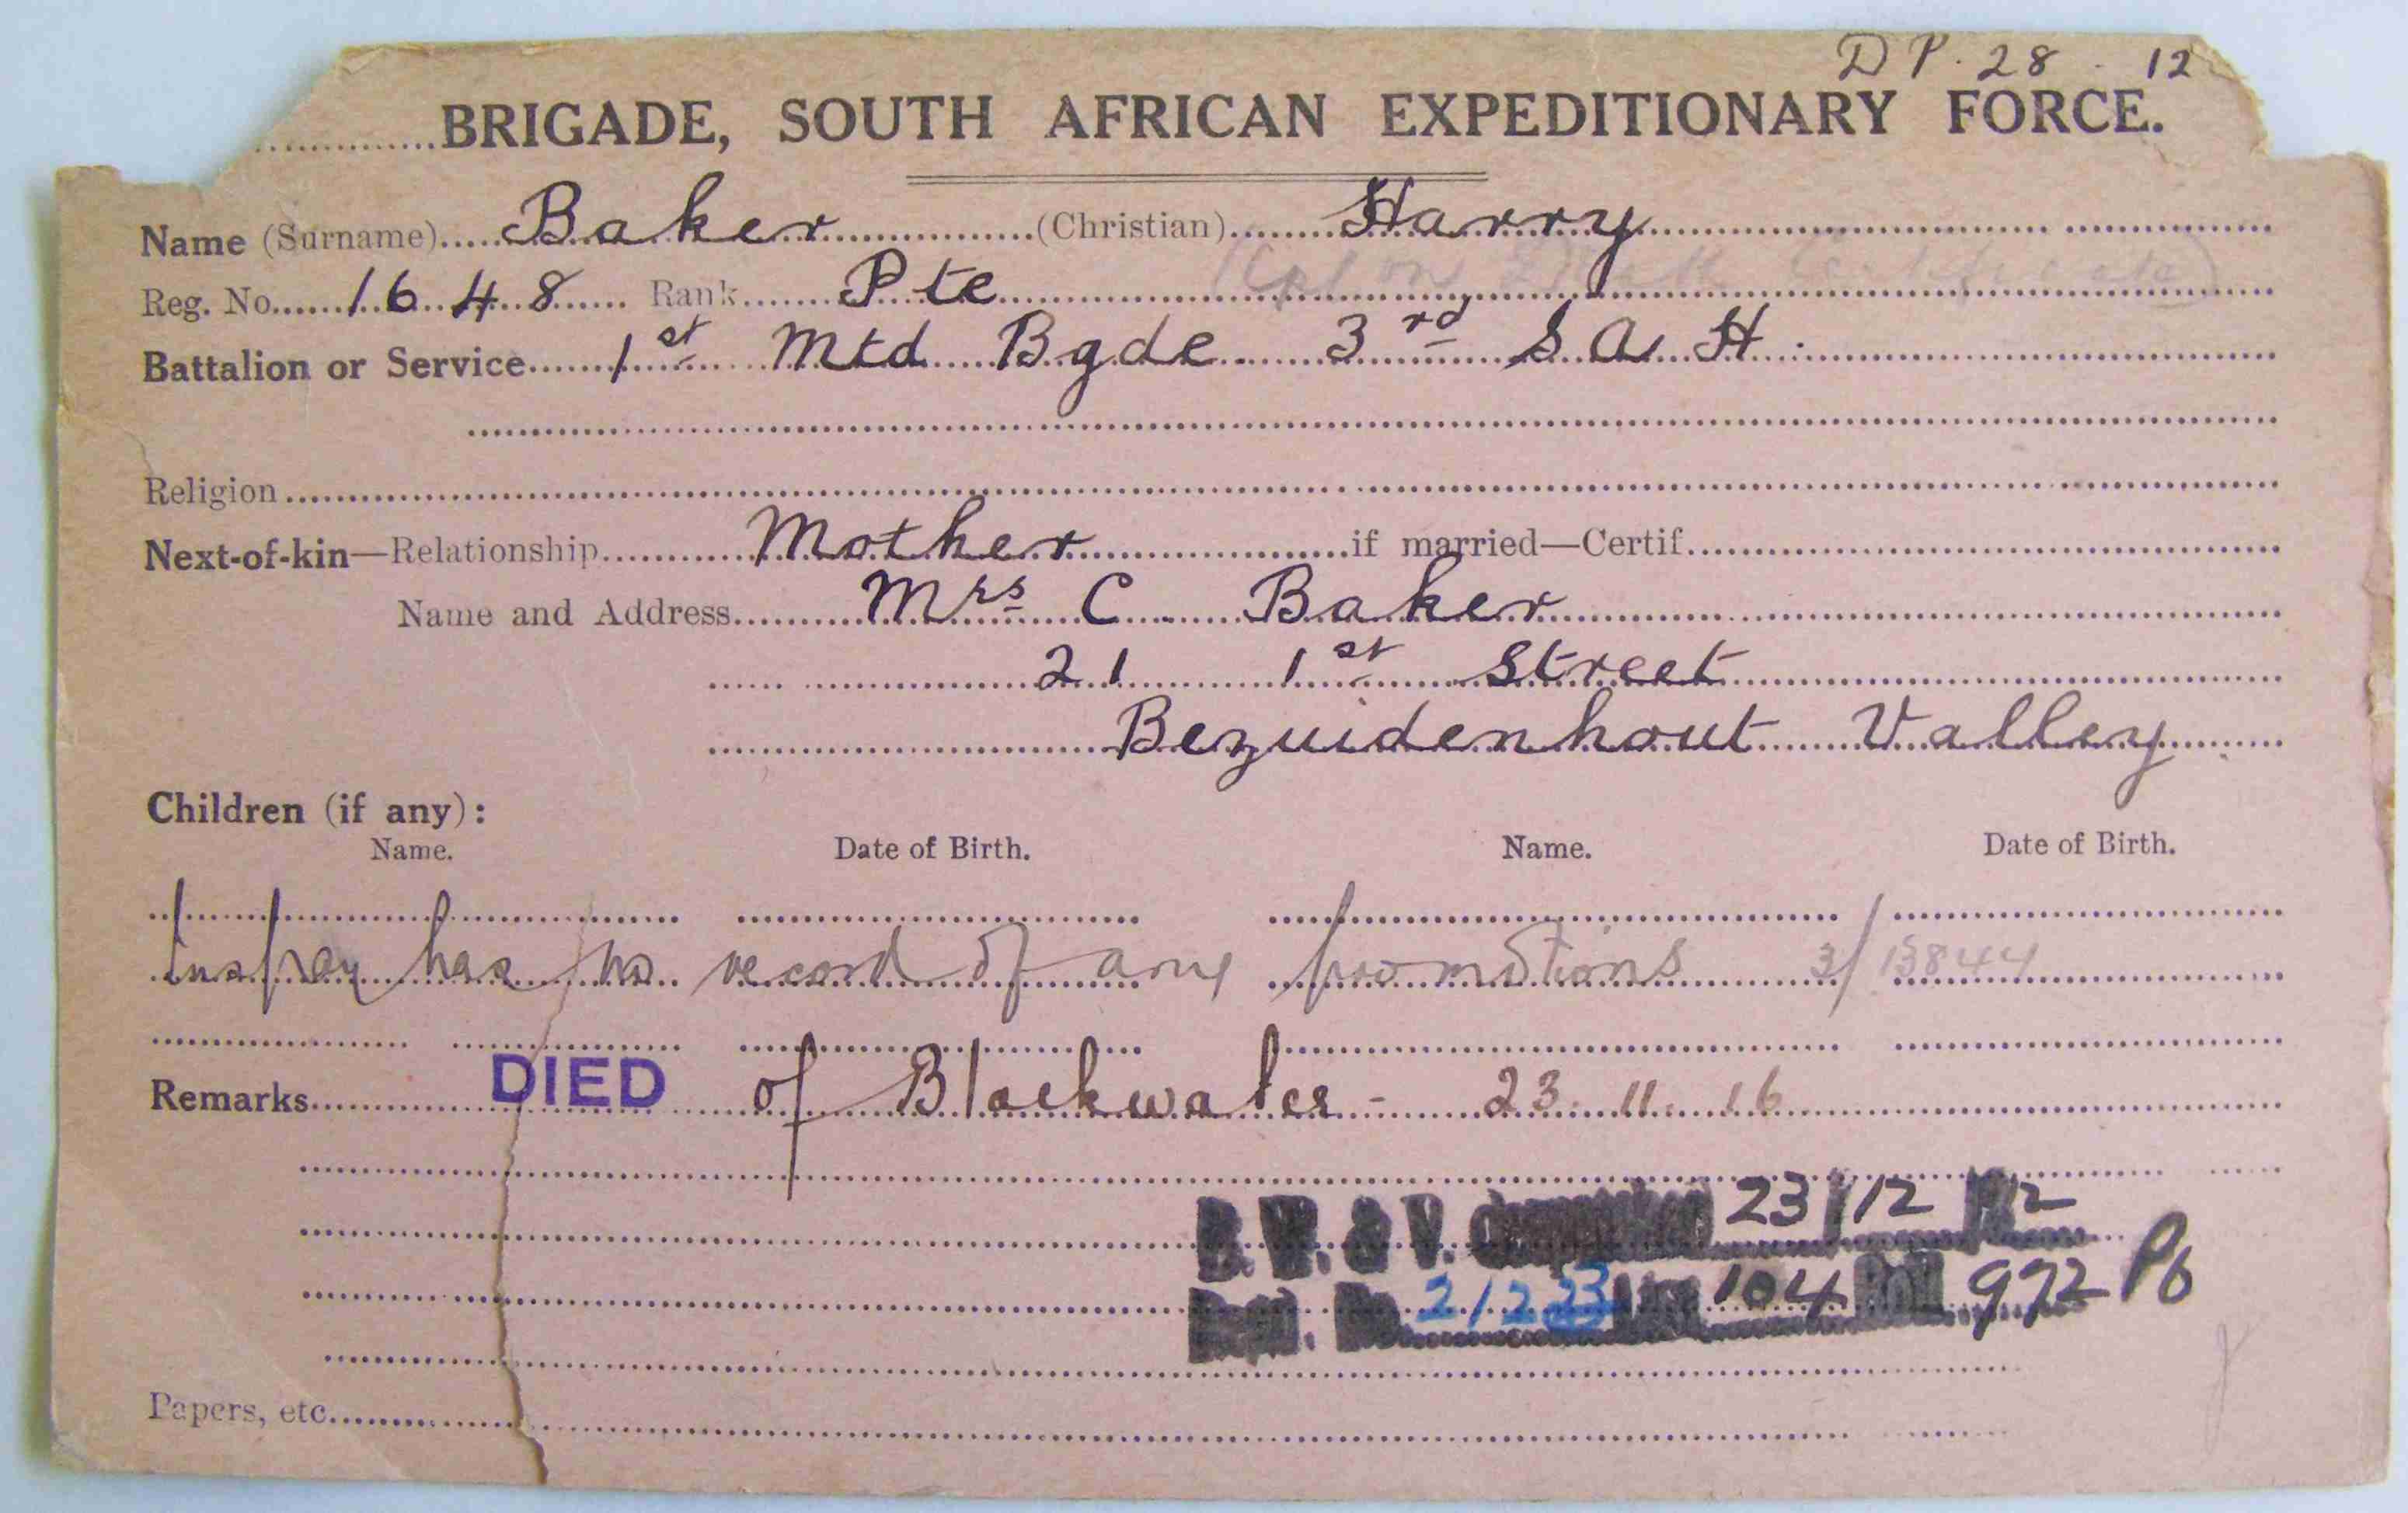 DP. 28 . 12
BRIGADE, SOUTH AFRICAN EXPEDITIONARY FORCE.
Name (Surname) Baker (Christian) Harry
Reg. No. 1648 Rank Pte
Battalion or Service 1st Mtd Bgde 3rd S.A.H.
Religion
Next-of-kin—Relationship Mother if married—Certif.
Name and Address Mrs C Baker
21 1st Street
Bezuidenhout Valley
Children (if any):
Name. Date of Birth. Name. Date of Birth.
has no record of any promotions 3/13844
Remarks DIED of Blackwater - 23.11.16
B. W. & V. 23/12
2/223 104 Roll 972
Papers, etc.